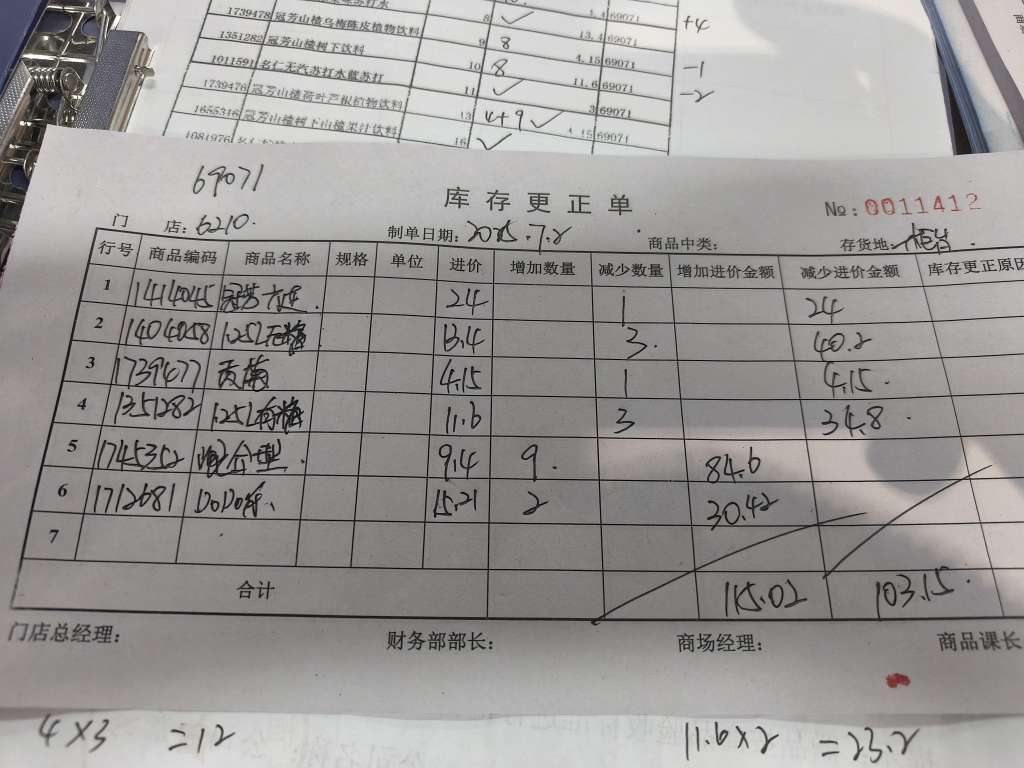 1739478 冠芳山楂乌梅陈皮植物饮料 8 ✓ 69071 +4
1351282 冠芳山楂树下饮料 9 8 13.4 69071
1011591 名仁无汽苏打水蓝苏打 10 8 4.15 69071 -1
1739476 冠芳山楂荷叶芦根植物饮料 11 ✓ 11.6 69071 -2
1655316 冠芳山楂树下山楂果汁饮料 13 4+9 ✓ 3 69071
1081976 16 ✓ 4.15 69071
69071
库存更正单
№: 0011412
门 店: 6210. 制单日期: 2025.7.2 商品中类: 存货地:
行号 商品编码 商品名称 规格 单位 进价 增加数量 减少数量 增加进价金额 减少进价金额 库存更正原因
1 1414045 24 1 24
2 1404058 1.25L 13.4 3. 40.2
3 1739477 4.15 1 4.15.
4 1351282 1.25L 11.6 3 34.8.
5 1745352 混合型. 9.4 9. 84.6
6 1712681 15.21 2 30.42
7
合计 115.02 103.15.
门店总经理: 财务部部长: 商场经理: 商品课长
4×3 =12 11.6×2 =23.2